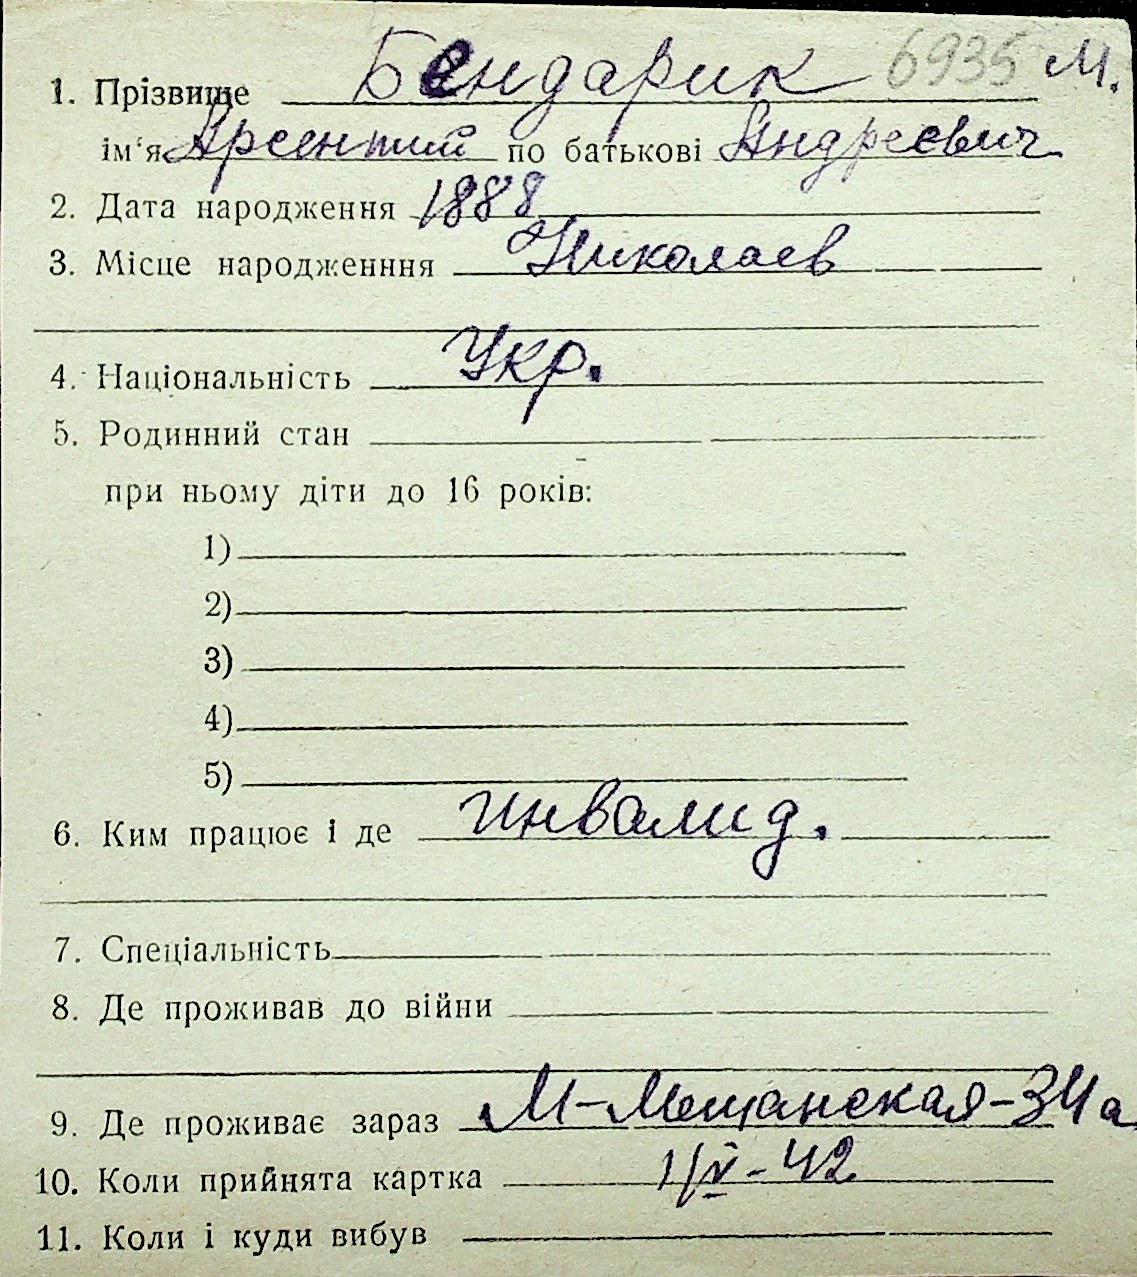 1. Прізвище Бендарик 6935 М.
ім‘я Арсентий по батькові Андреевич
2. Дата народження 1888
3. Місце народженння Николаев
4. Національність Укр.
5. Родинний стан
при ньому діти до 16 років:
1)
2)
3)
4)
5)
6. Ким працює і де инвалид.
7. Спеціальність
8. Де проживав до війни
9. Де проживає зараз М-Мещанская-34а
10. Коли прийнята картка 1/V-42
11. Коли і куди вибув